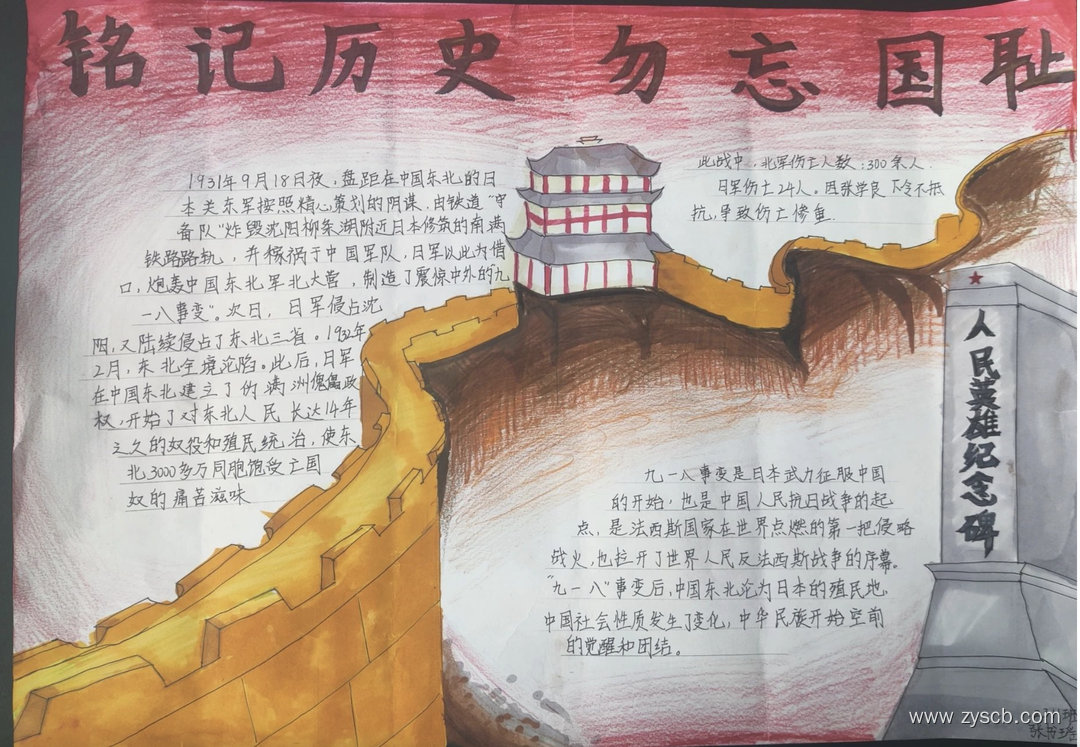 铭记历史 勿忘国耻
1931年9月18日夜，盘距在中国东北的日
本关东军按照精心策划的阴谋，由铁道“守
备队”炸毁沈阳柳条湖附近日本修筑的南满
铁路路轨，并稼祸于中国军队，日军以此为借
口，炮轰中国东北军北大营，制造了震惊中外的“九
一八事变”。次日，日军侵占沈
阳，又陆续侵占了东北三省。1932年
2月，东北全境沦陷。此后，日军
在中国东北建立了伪满洲傀儡政
权，开始了对东北人民长达14年
之久的奴役和殖民统治，使东
北3000多万同胞饱受亡国
奴的痛苦滋味
此战中，北军伤亡人数：300余人.
日军伤亡24人。因张学良下令不抵
抗，导致伤亡惨重.
人民英雄纪念碑
九一八事变是日本武力征服中国
的开始，也是中国人民抗日战争的起
点，是法西斯国家在世界点燃的第一把侵略
战火，也拉开了世界人民反法西斯战争的序幕。
“九一八”事变后，中国东北沦为日本的殖民地，
中国社会性质发生了变化，中华民族开始空前
的觉醒和团结。
www.zyscb.com